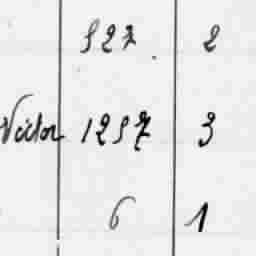 527. 2
Victor 1257 3
6 1